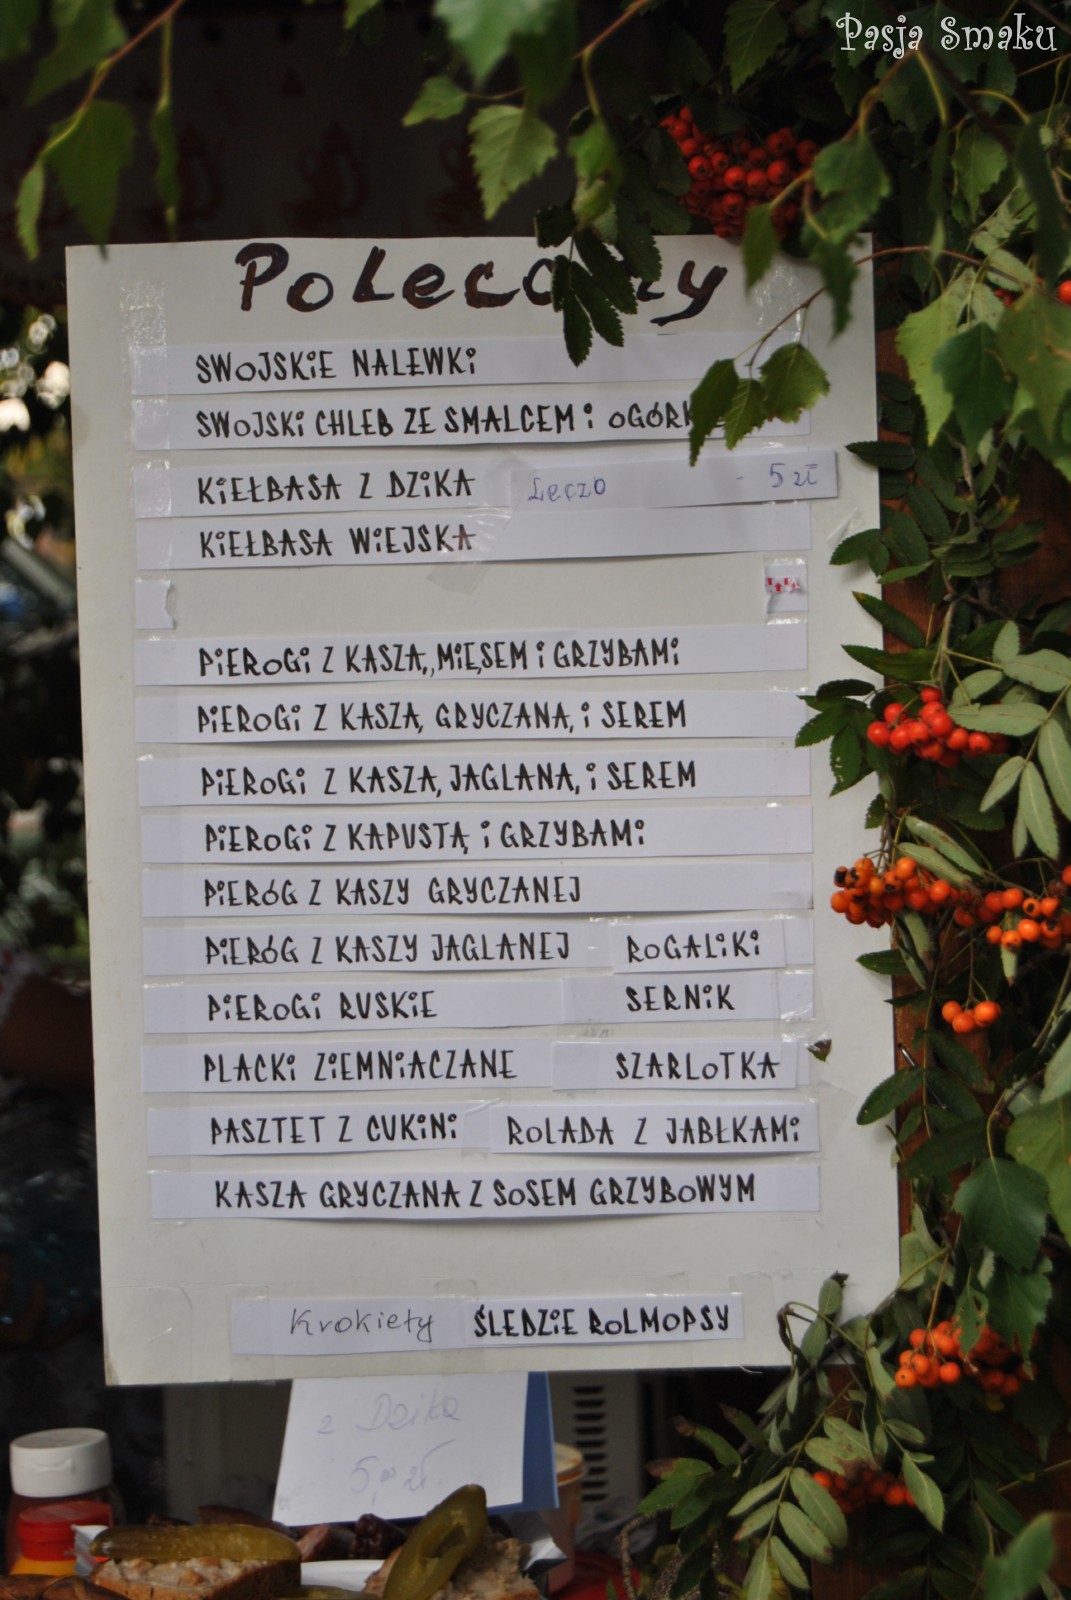 Pasja Smaku
Polecamy
SWOJSKIE NALEWKI
SWOJSKI CHLEB ZE SMALCEM I
KIEŁBASA Z DZIKA Leczo - 5 zł
KIEŁBASA WIEJSKA
PIEROGI Z KASZĄ, MIĘSEM I GRZYBAMI
PIEROGI Z KASZĄ GRYCZANĄ I SEREM
PIEROGI Z KASZĄ JAGLANĄ I SEREM
PIEROGI Z KAPUSTĄ I GRZYBAMI
PIERÓG Z KASZY GRYCZANEJ
PIERÓG Z KASZY JAGLANEJ ROGALIKI
PIEROGI RUSKIE SERNIK
PLACKI ZIEMNIACZANE SZARLOTKA
PASZTET Z CUKINI ROLADA Z JABŁKAMI
KASZA GRYCZANA Z SOSEM GRZYBOWYM
Krokiety ŚLEDZIE ROLMOPSY
z Dzika
5,00 zł